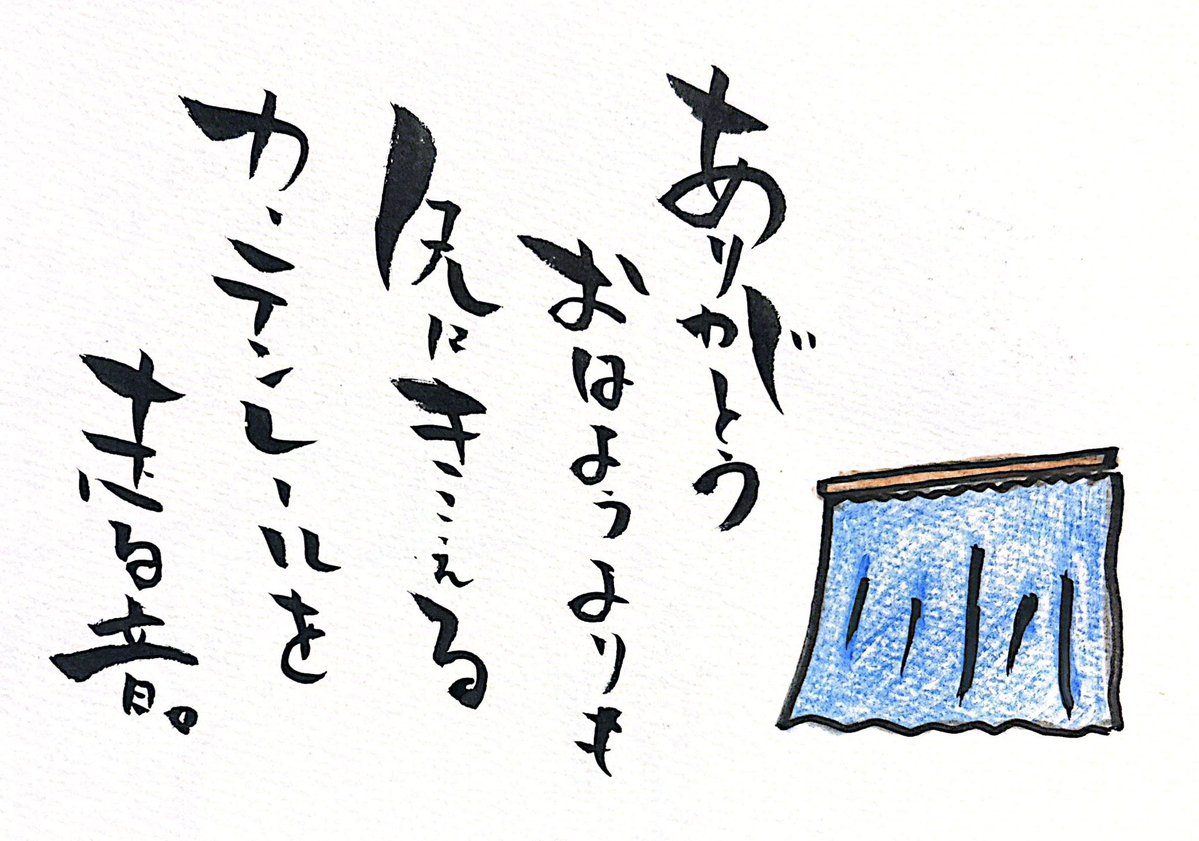 ありがとう
おはようよりも
先にきこえる
カーテンレールを
走る音。